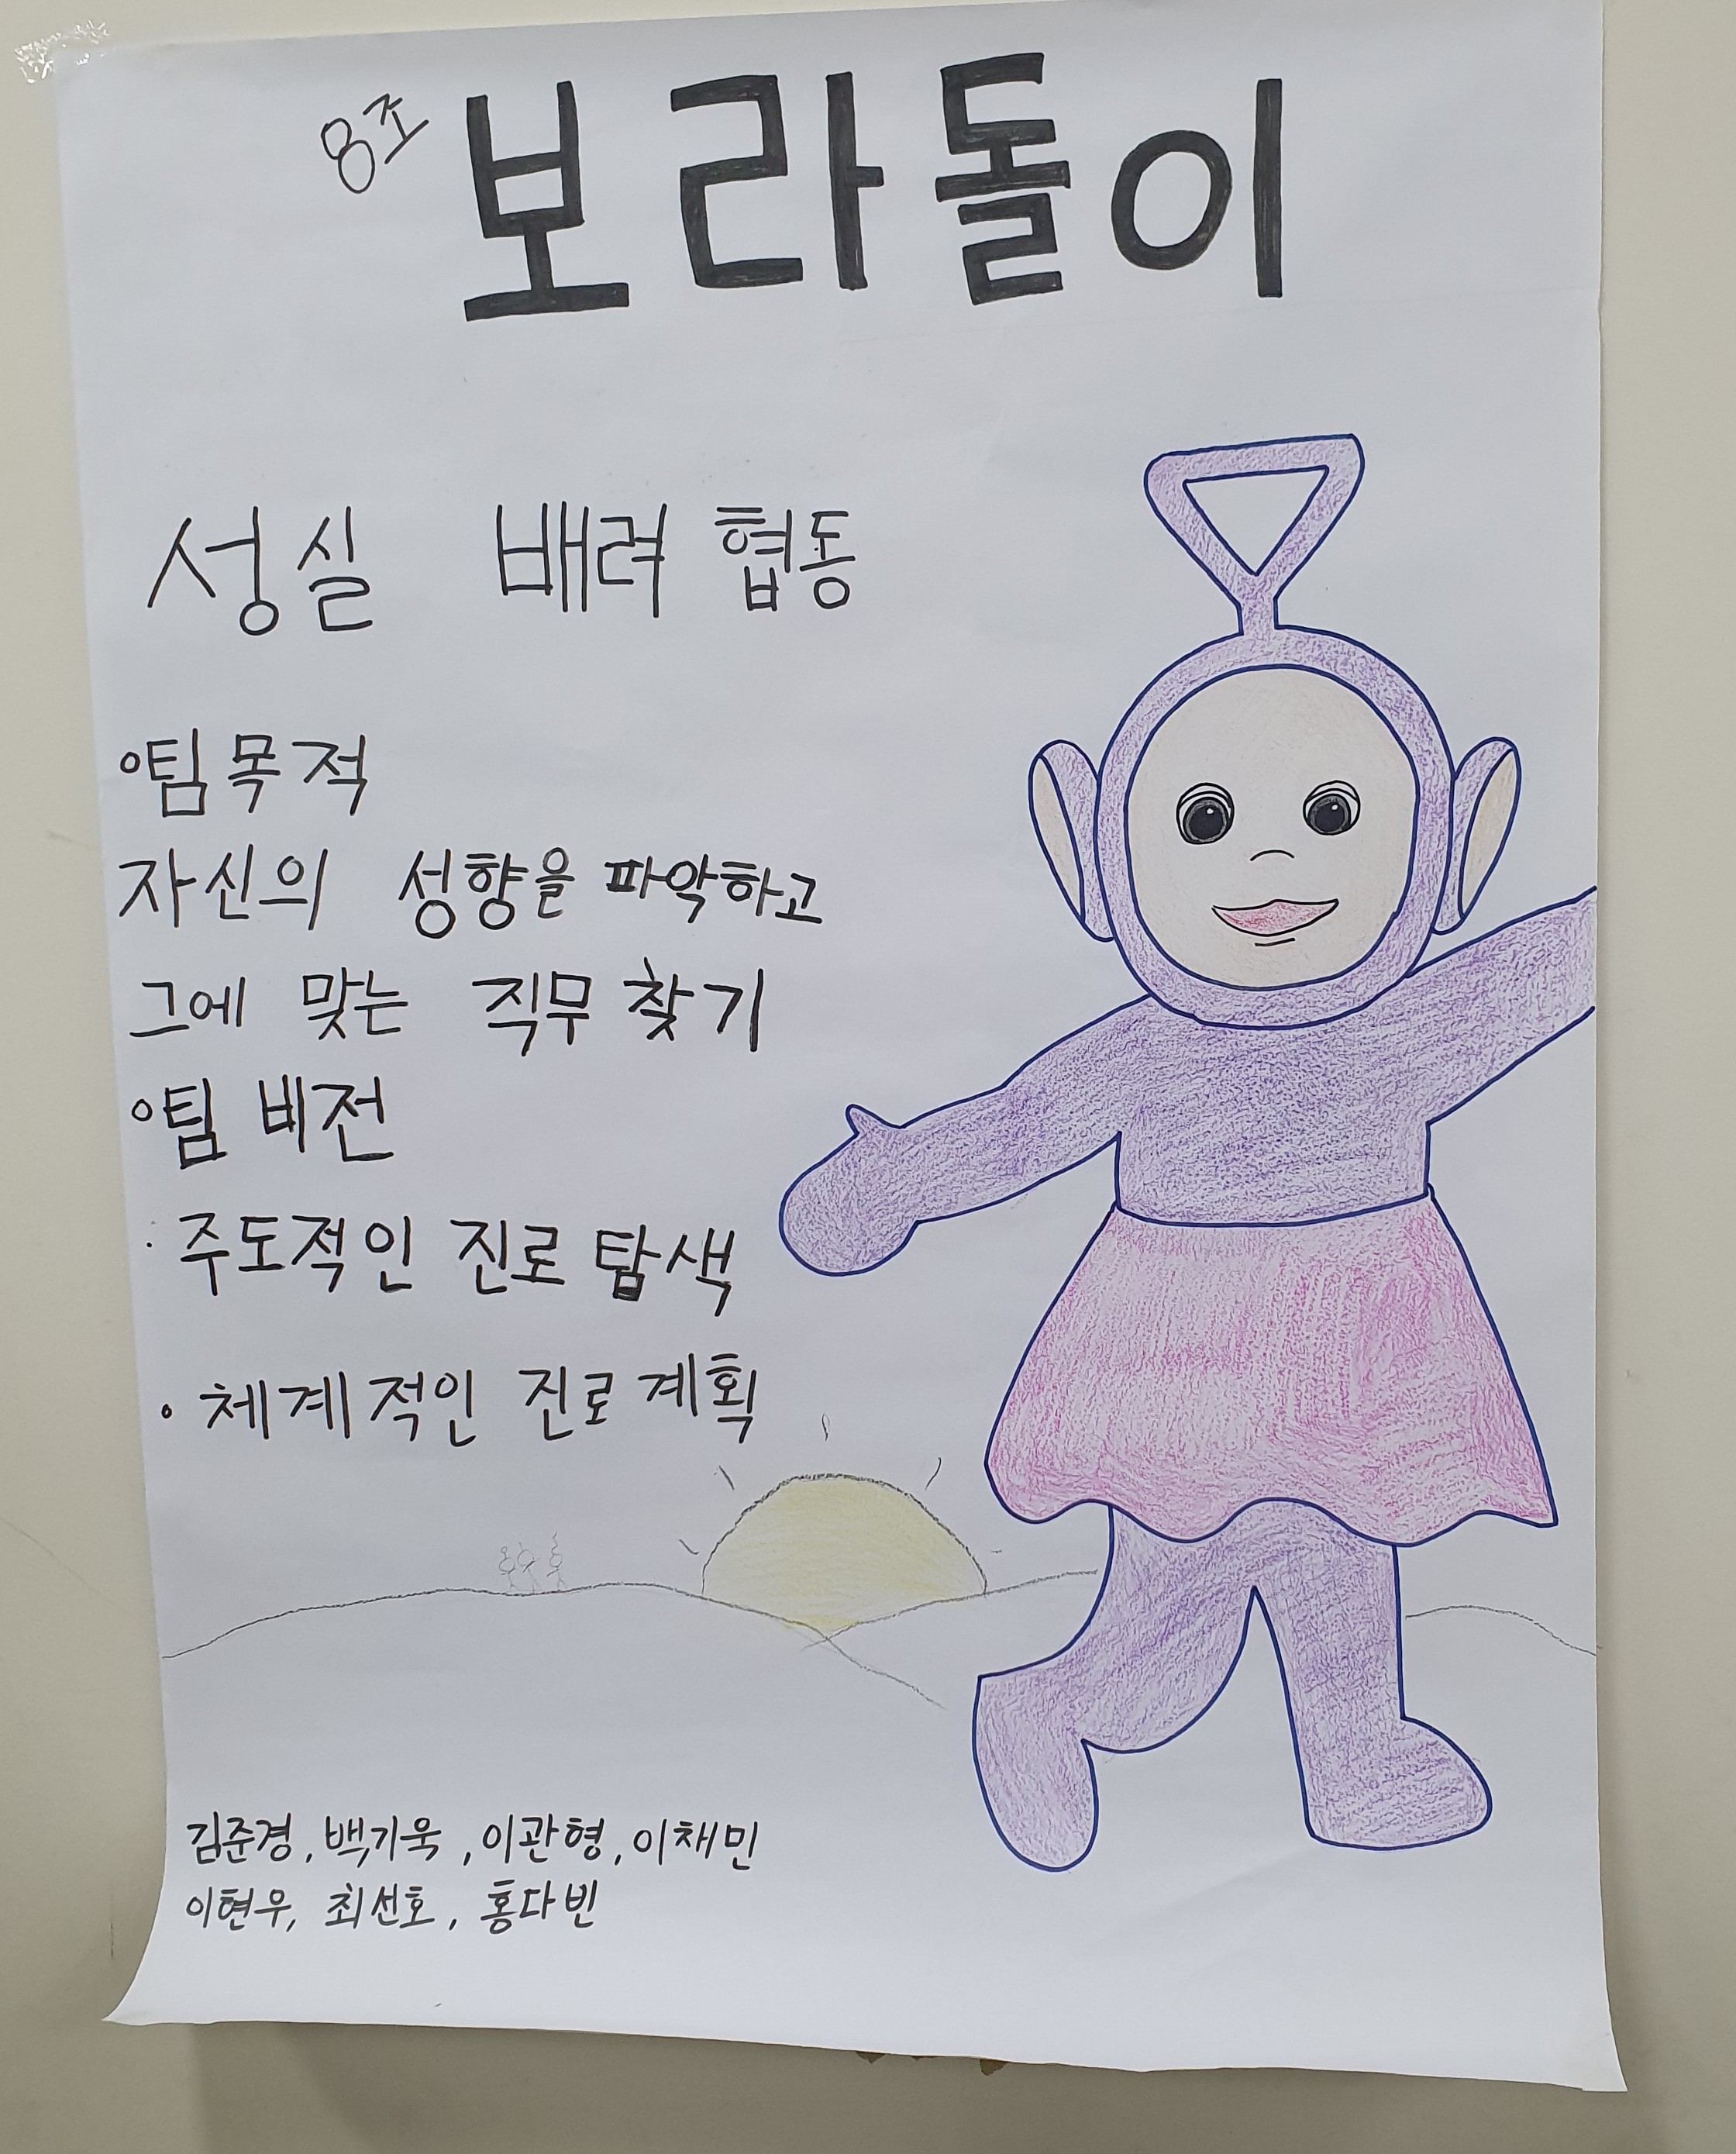 8조 보라돌이
성실 배려 협동
◦팀 목적
자신의 성향을 파악하고
그에 맞는 직무 찾기
◦팀 비전
· 주도적인 진로 탐색
· 체계적인 진로 계획
김준경, 백기욱, 이관형, 이채민
이현우, 최선호, 홍다빈